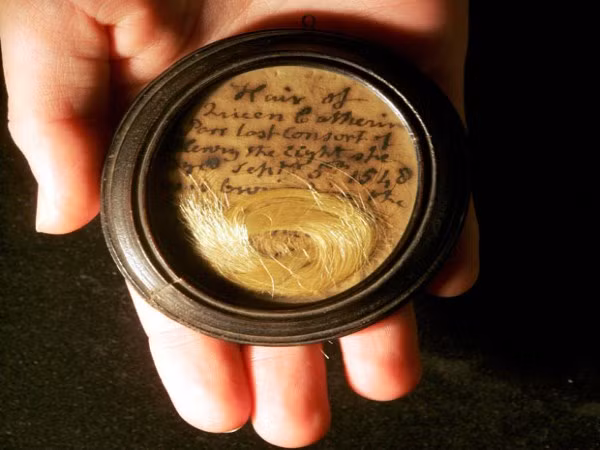 Hair of
Queen Catherin
Parr Last Consort of
Henry the Eight she
Septr 5th 1548